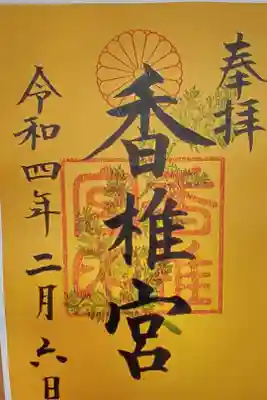 奉拝
香椎宮
令和四年二月六日